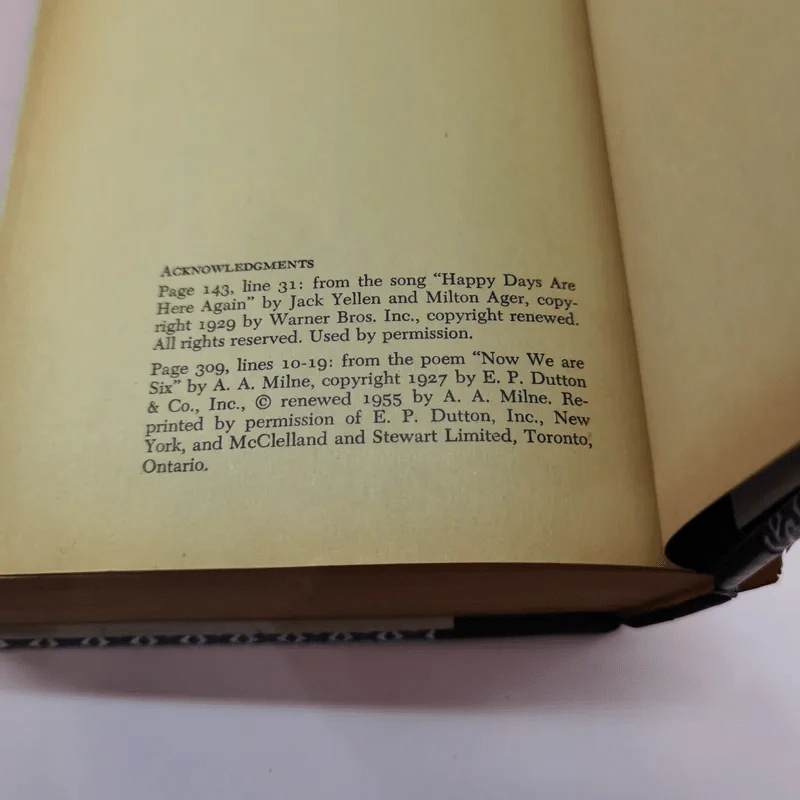 ACKNOWLEDGMENTS
Page 143, line 31: from the song "Happy Days Are
Here Again" by Jack Yellen and Milton Ager, copy-
right 1929 by Warner Bros. Inc., copyright renewed.
All rights reserved. Used by permission.
Page 309, lines 10-19: from the poem "Now We are
Six" by A. A. Milne, copyright 1927 by E. P. Dutton
& Co., Inc., © renewed 1955 by A. A. Milne. Re-
printed by permission of E. P. Dutton, Inc., New
York, and McClelland and Stewart Limited, Toronto,
Ontario.